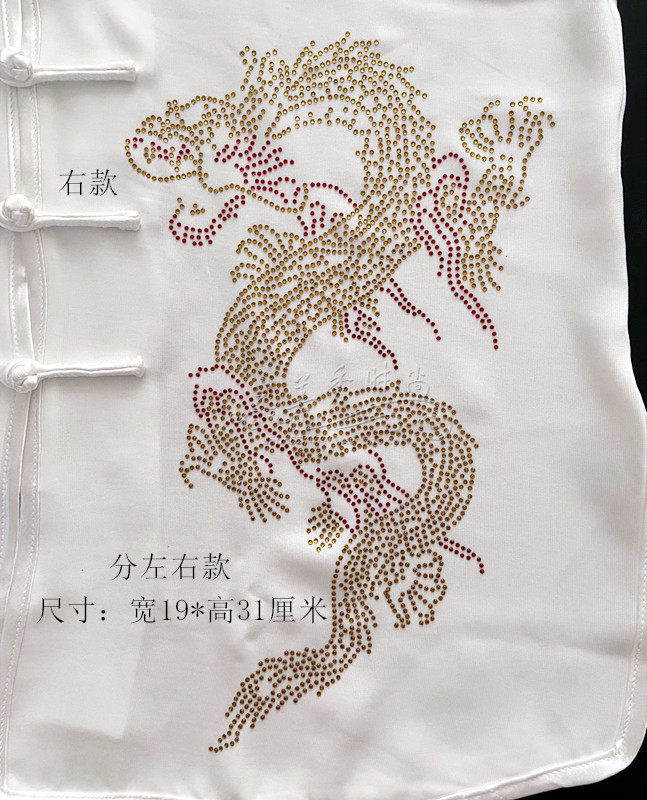 右款
分左右款
尺寸：宽19*高31厘米